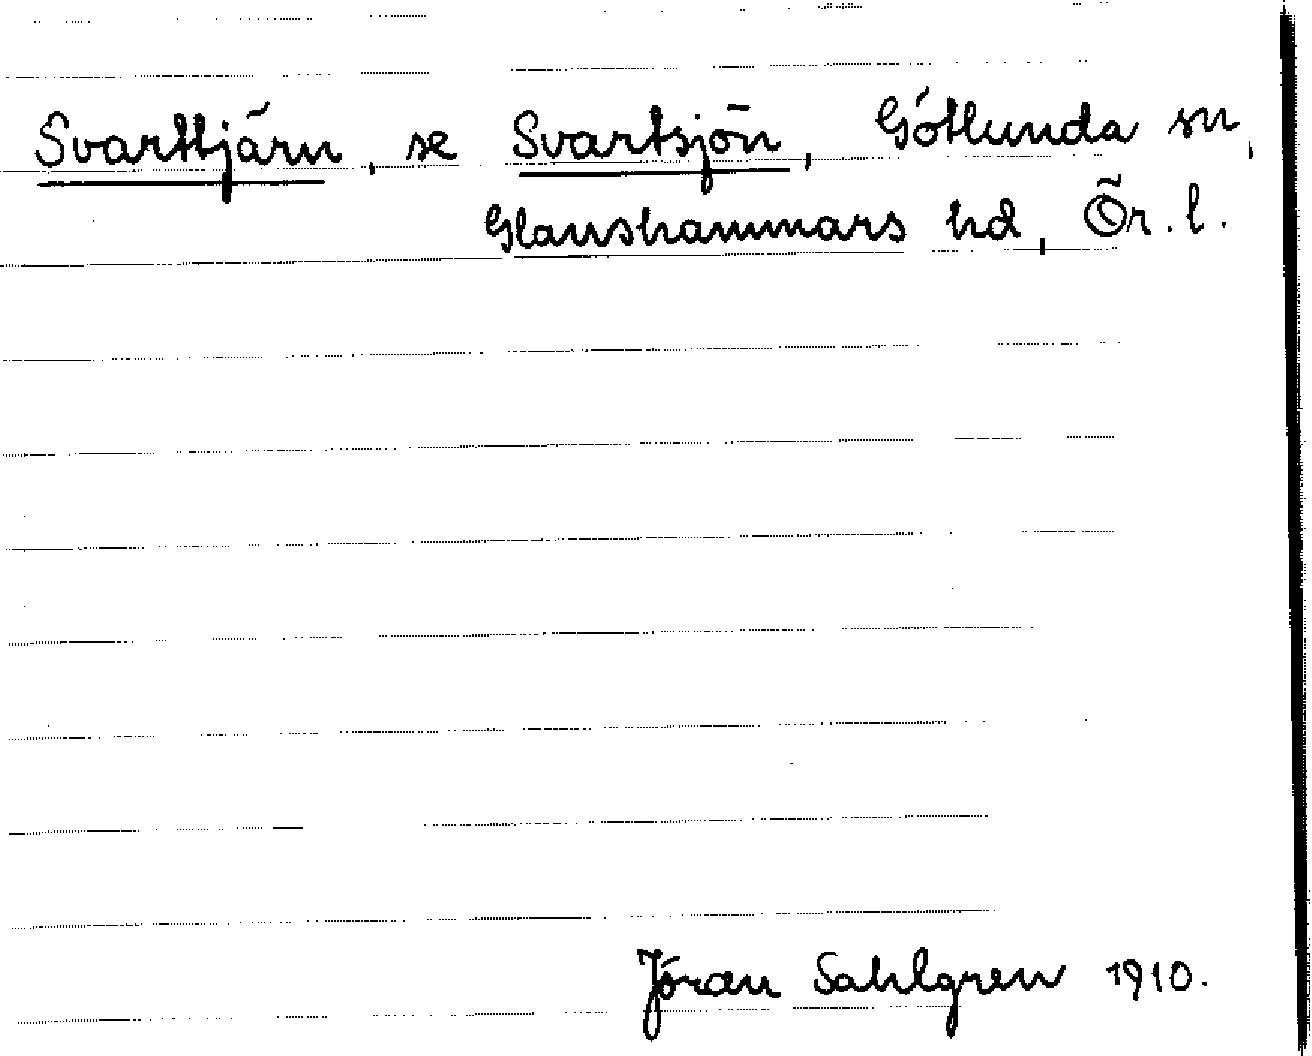 Svarttjärn, se Svartsjön, Götlunda sn,
Glanshammars hd, Ör. l.
Jöran Sahlgren 1910.